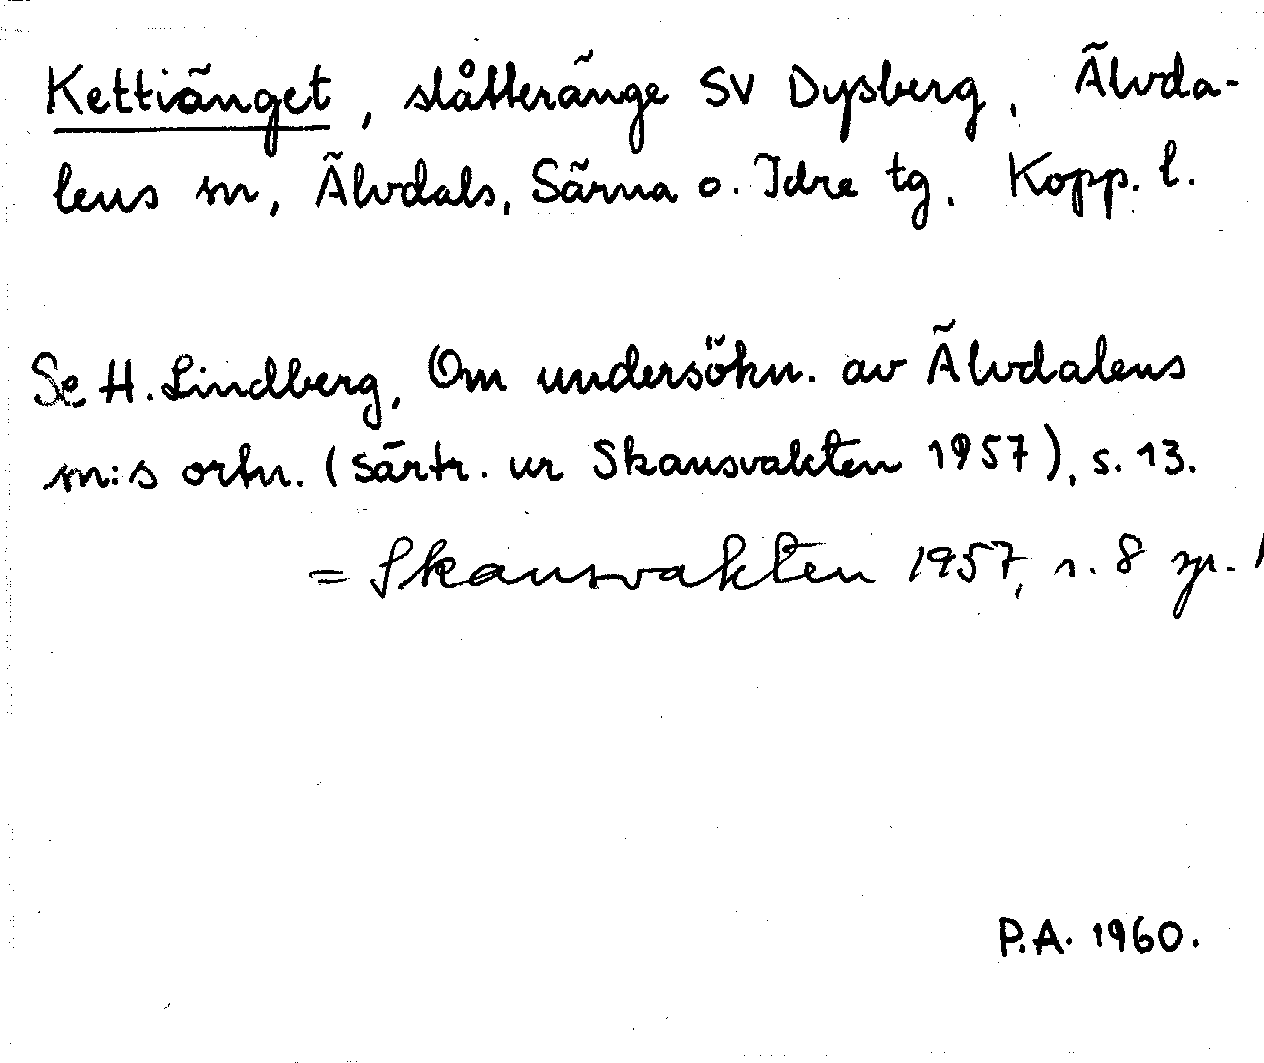 Kettiänget, slåtteränge SV Dysberg, Älvda-
lens sn, Älvdals, Särna o. Idre tg. Kopp. l.
Se H. Lindberg, Om undersökn. av Älvdalens
sn:s ortn. (särtr. ur Skansvakten 1957), s. 13.
= Skansvakten 1957, s. 8 sp. 1
P.A. 1960.